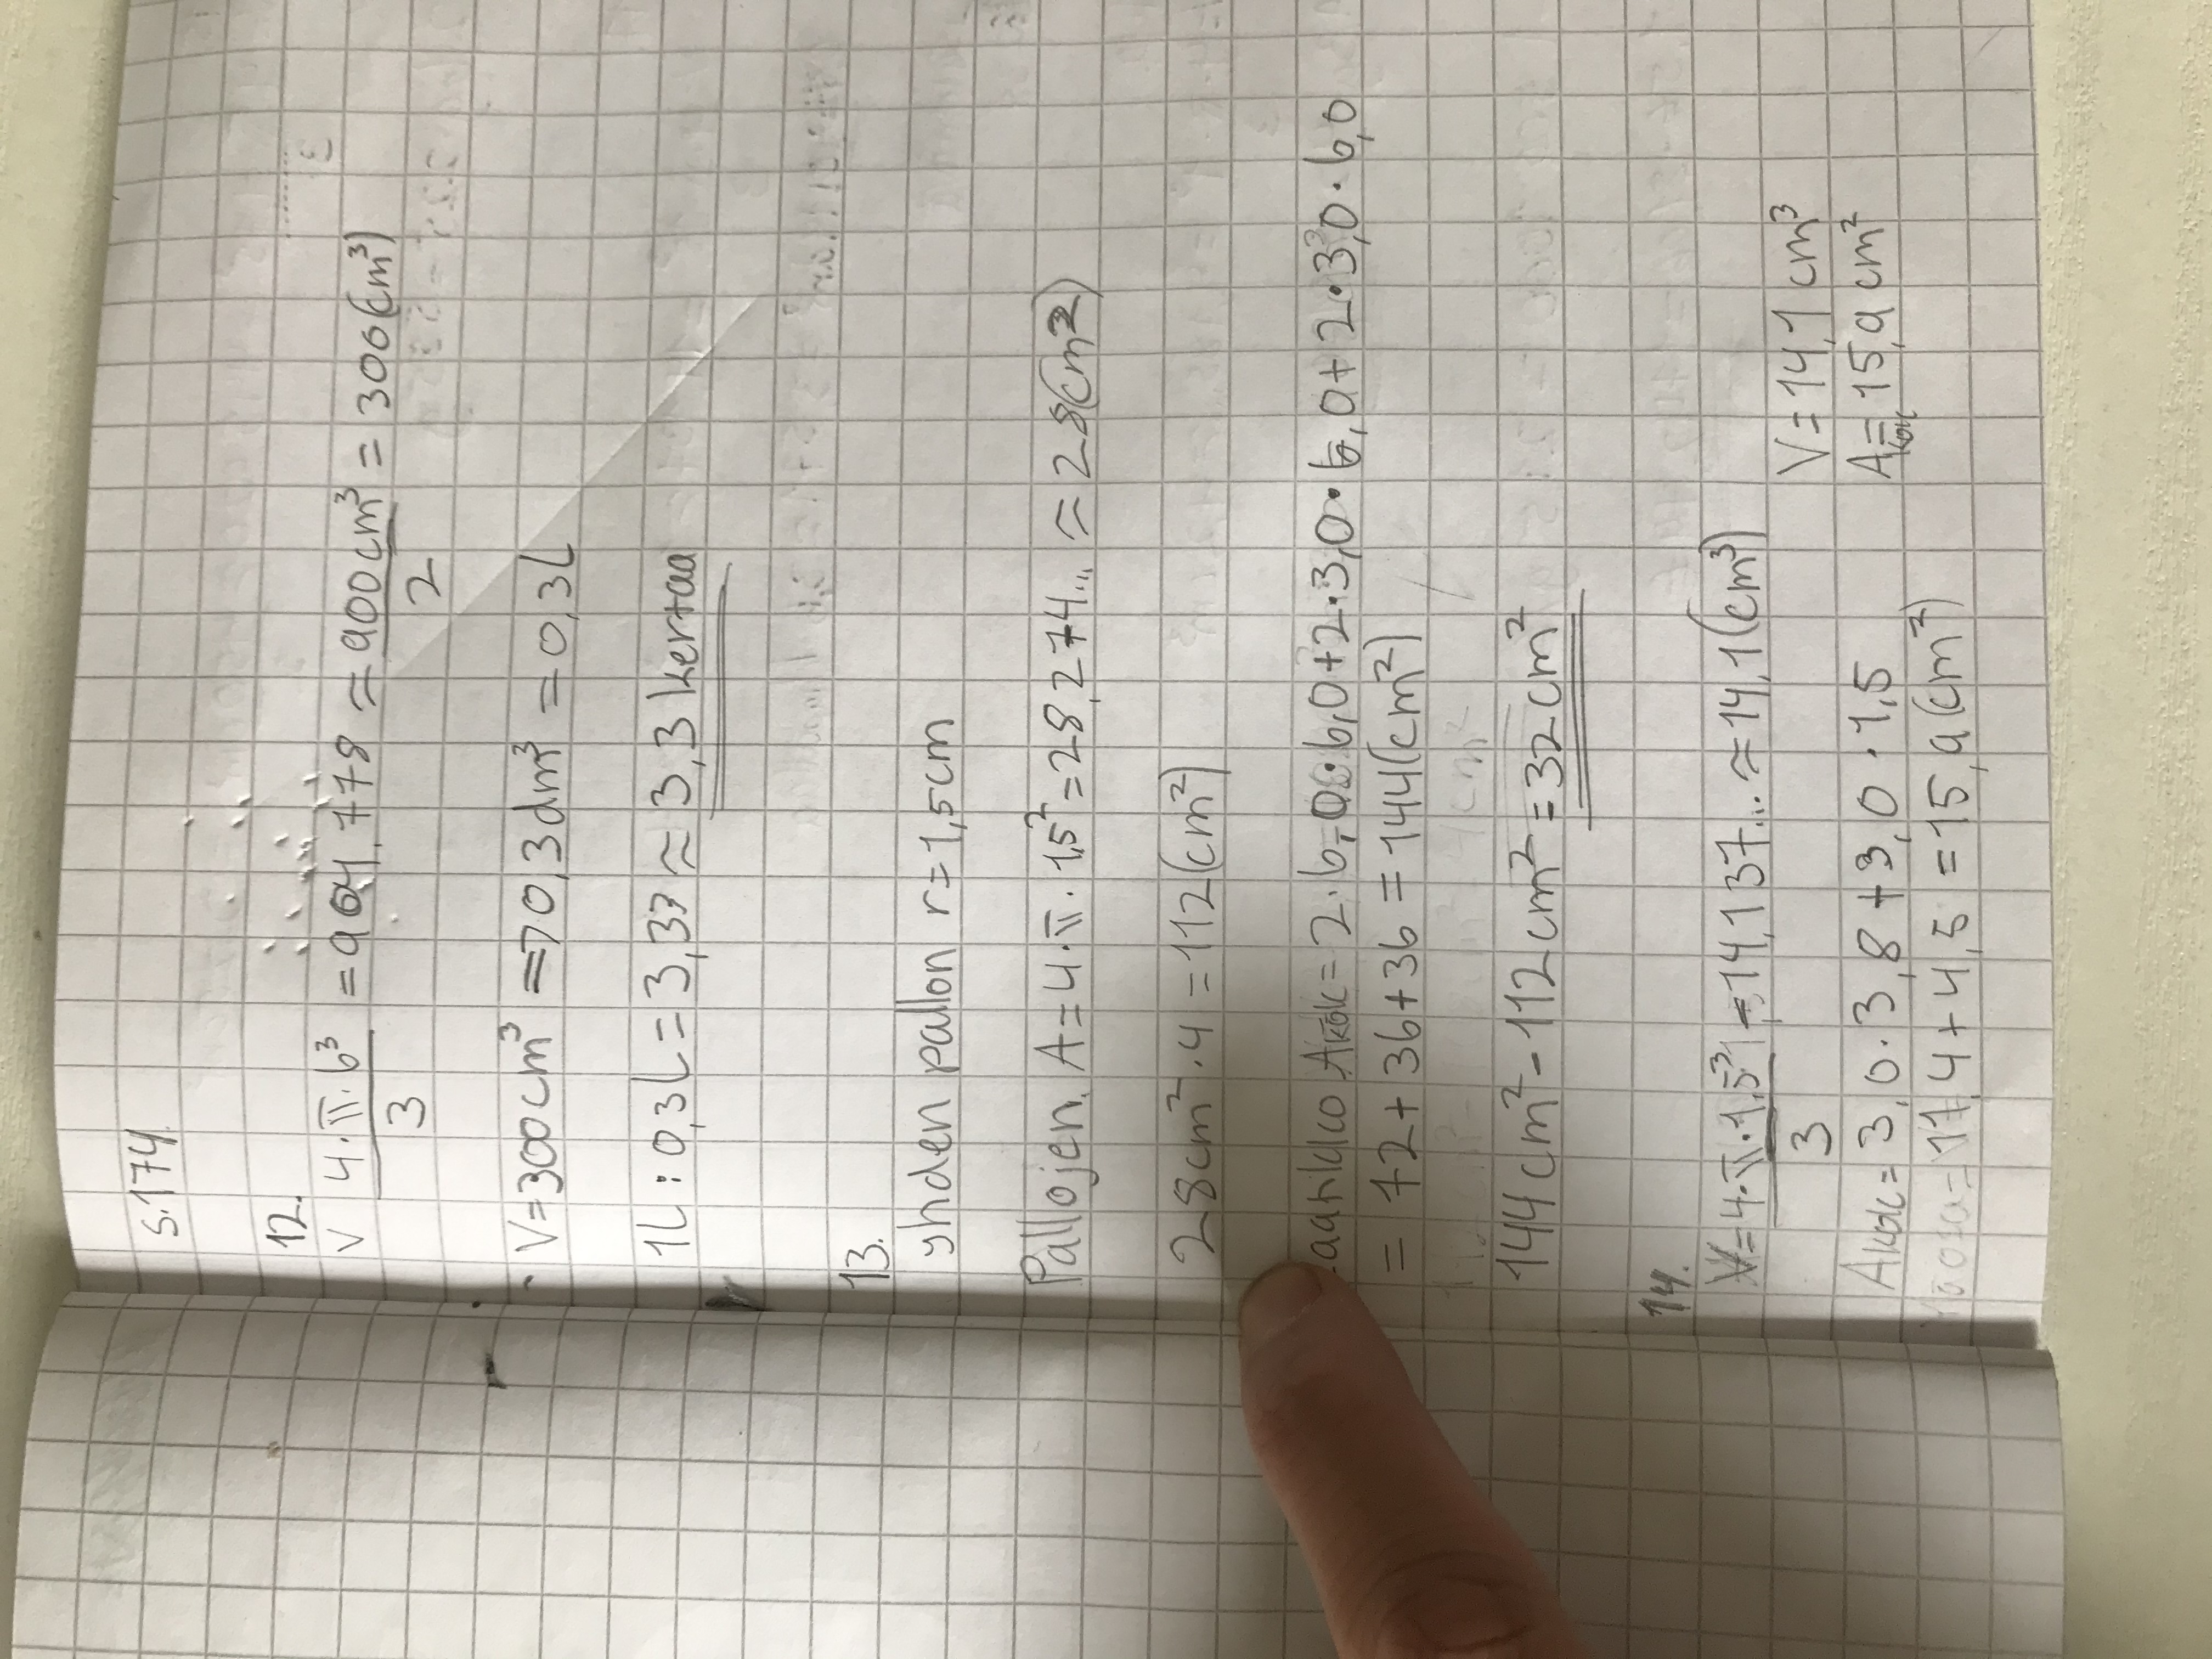 s.174
12.
V 4·π·6³ = 904,778 ≈ 900cm³ = 300(cm³)
3 2
V=300cm³ = 0,3dm³ = 0,3L
1L : 0,3L = 3,33 ≈ 3,3 kertaa
13.
yhden pallon r=1,5cm
Pallojen A=4·π·1,5²=28,274... ≈ 28(cm²)
28cm²·4 = 112(cm²)
Akok= 2·6,0·6,0+2·3,0·6,0+2·3,0·6,0
= 72+36+36 = 144(cm²)
144cm²-112cm²=32cm²
14.
V=4·π·1,5³ = 14,137... ≈ 14,1(cm³)
3
V=14,1cm³
Akok= 3,0·3,8+3,0·1,5
A=15,9cm²
kok
= 11,4+4,5 = 15,9(cm²)